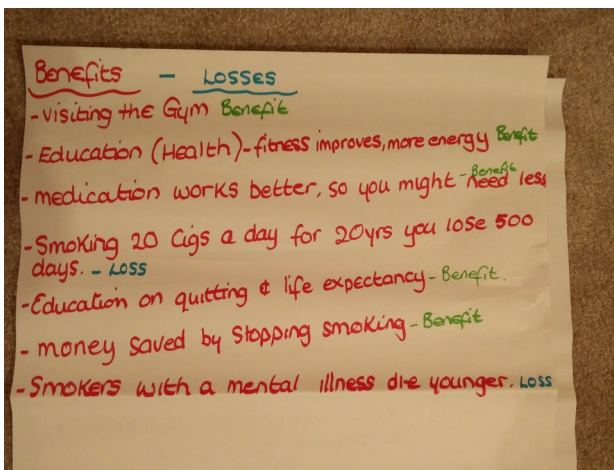 Benefits - Losses
- Visiting the Gym Benefit
- Education (Health) - fitness improves, more energy Benefit
- medication works better, so you might need less - Benefit
- Smoking 20 Cigs a day for 20yrs you lose 500
days. - Loss
- Education on quitting & life expectancy - Benefit.
- money saved by stopping smoking - Benefit
- Smokers with a mental illness die younger. Loss